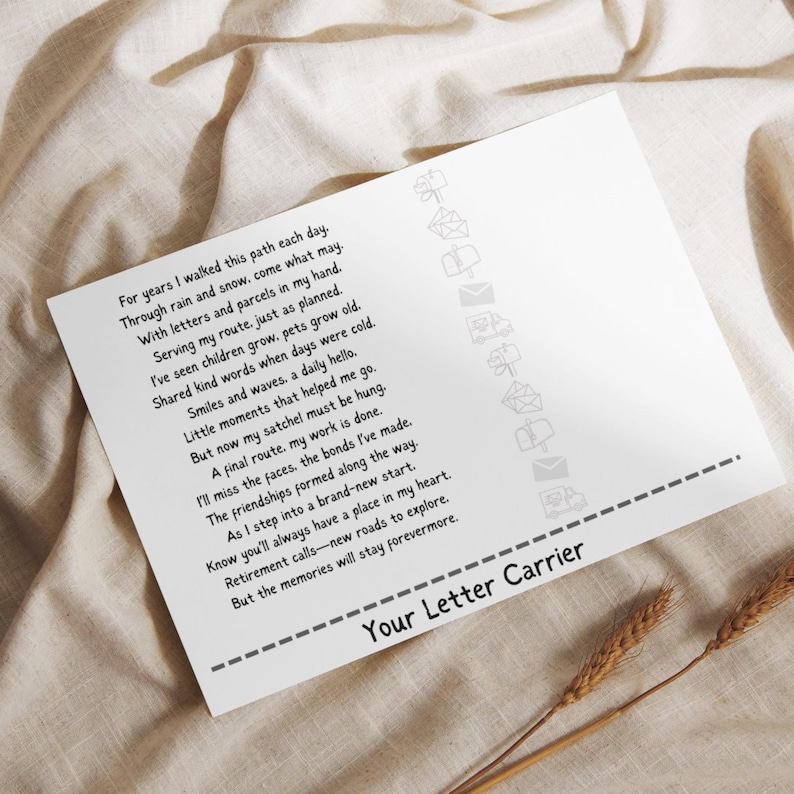 For years I walked this path each day,
Through rain and snow, come what may.
With letters and parcels in my hand,
Serving my route, just as planned.
I've seen children grow, pets grow old,
Shared kind words when days were cold.
Smiles and waves, a daily hello,
Little moments that helped me go.
But now my satchel must be hung,
A final route, my work is done.
I'll miss the faces, the bonds I've made,
The friendships formed along the way.
As I step into a brand-new start,
Know you'll always have a place in my heart.
Retirement calls—new roads to explore,
But the memories will stay forevermore.
Your Letter Carrier